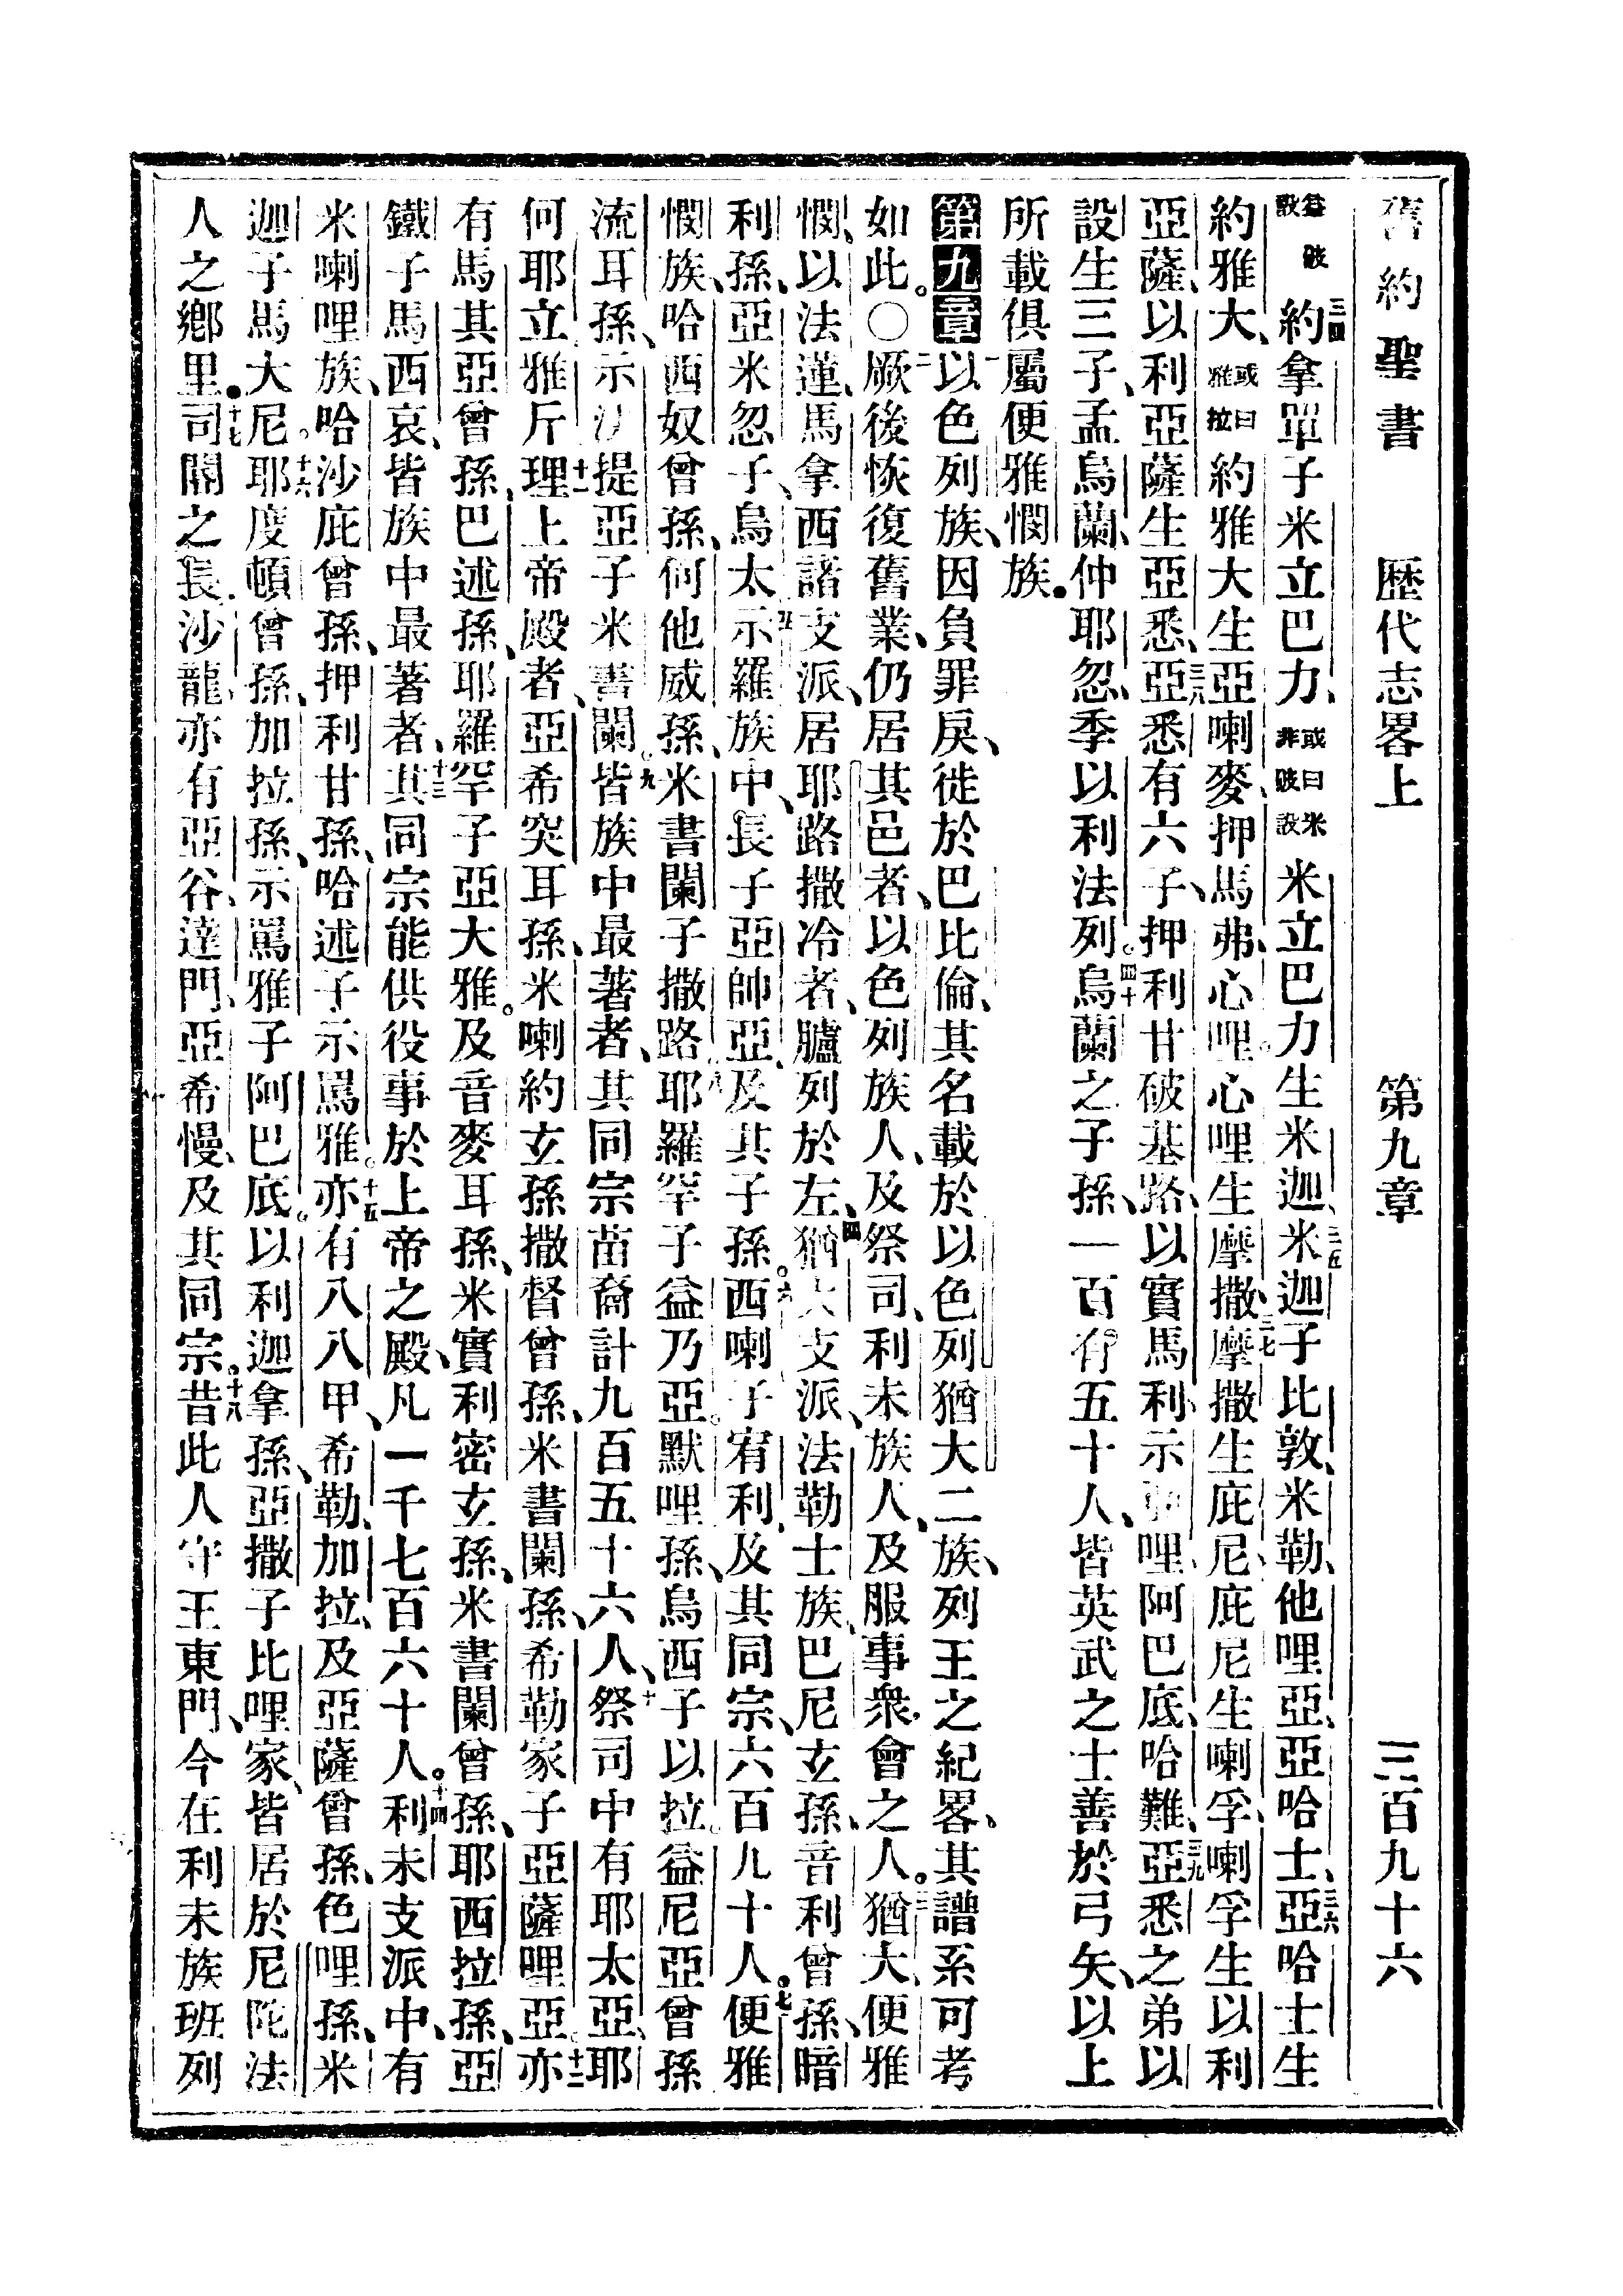 舊約聖書 歷代志畧上 第九章 三百九十六
益破設 三四約拿單子米立巴力、或曰米非破設米立巴力生米迦、三五米迦子比敦、米勒、他哩亞、亞哈士、三六亞哈士生
約雅大、或曰雅拉約雅大生亞喇麥、押馬弗、心哩。心哩生摩撒、三七摩撒生庇尼、庇尼生喇孚、喇孚生以利
亞薩、以利亞薩生亞悉、三八亞悉有六子、押利甘、破基路、以實馬利、示亞哩、阿巴底、哈難、三九亞悉之弟以
設生三子、孟烏蘭、仲耶忽、季以利法列。四十烏蘭之子孫、一百有五十人、皆英武之士善於弓矢、以上
所載俱屬便雅憫族。
第九章 一以色列族、因負罪戾、徙於巴比倫、其名載於以色列猶大二族、列王之紀畧、其譜系可考
如此。〇二厥後恢復舊業、仍居其邑者、以色列族人、及祭司、利未族人、及服事衆會之人。三猶大、便雅
憫、以法蓮、馬拿西諸支派、居耶路撒冷者、臚列於左、四猶大支派、法勒士族、巴尼玄孫、音利曾孫、暗
利孫、亞米忽子、烏太、五示羅族中、長子亞帥亞、及其子孫。六西喇子宥利、及其同宗、六百九十人。七便雅
憫族、哈西奴曾孫、何他威孫、米書闌子撒路、八耶羅罕子益乃亞。默哩孫、烏西子以拉。益尼亞曾孫
流耳孫、示法提亞子米書闌。九皆族中最著者、其同宗苗裔計九百五十六人、十祭司中有耶太亞、耶
何耶立雅斤、十一理上帝殿者、亞希突耳孫、米喇約玄孫、撒督曾孫、米書闌孫、希勒家子亞薩哩亞。十二亦
有馬其亞曾孫、巴述孫、耶羅罕子亞大雅。及音麥耳孫、米實利密玄孫、米書闌曾孫、耶西拉孫、亞
鐵子馬西哀、皆族中最著者、十三其同宗能供役事於上帝之殿、凡一千七百六十人。十四利未支派中、有
米喇哩族、哈沙庇曾孫、押利甘孫、哈述子示罵雅。十五亦有八八甲、希勒、加拉、及亞薩曾孫、色哩孫、米
迦子馬大尼。十六耶度頓曾孫、加拉孫、示罵雅子阿巴底。以利迦拿孫、亞撒子比哩家、皆居於尼陀法
人之鄉里。十七司閽之長沙龍、亦有亞谷、達門、亞希慢、及其同宗。十八昔此人守王東門、今在利未族班列